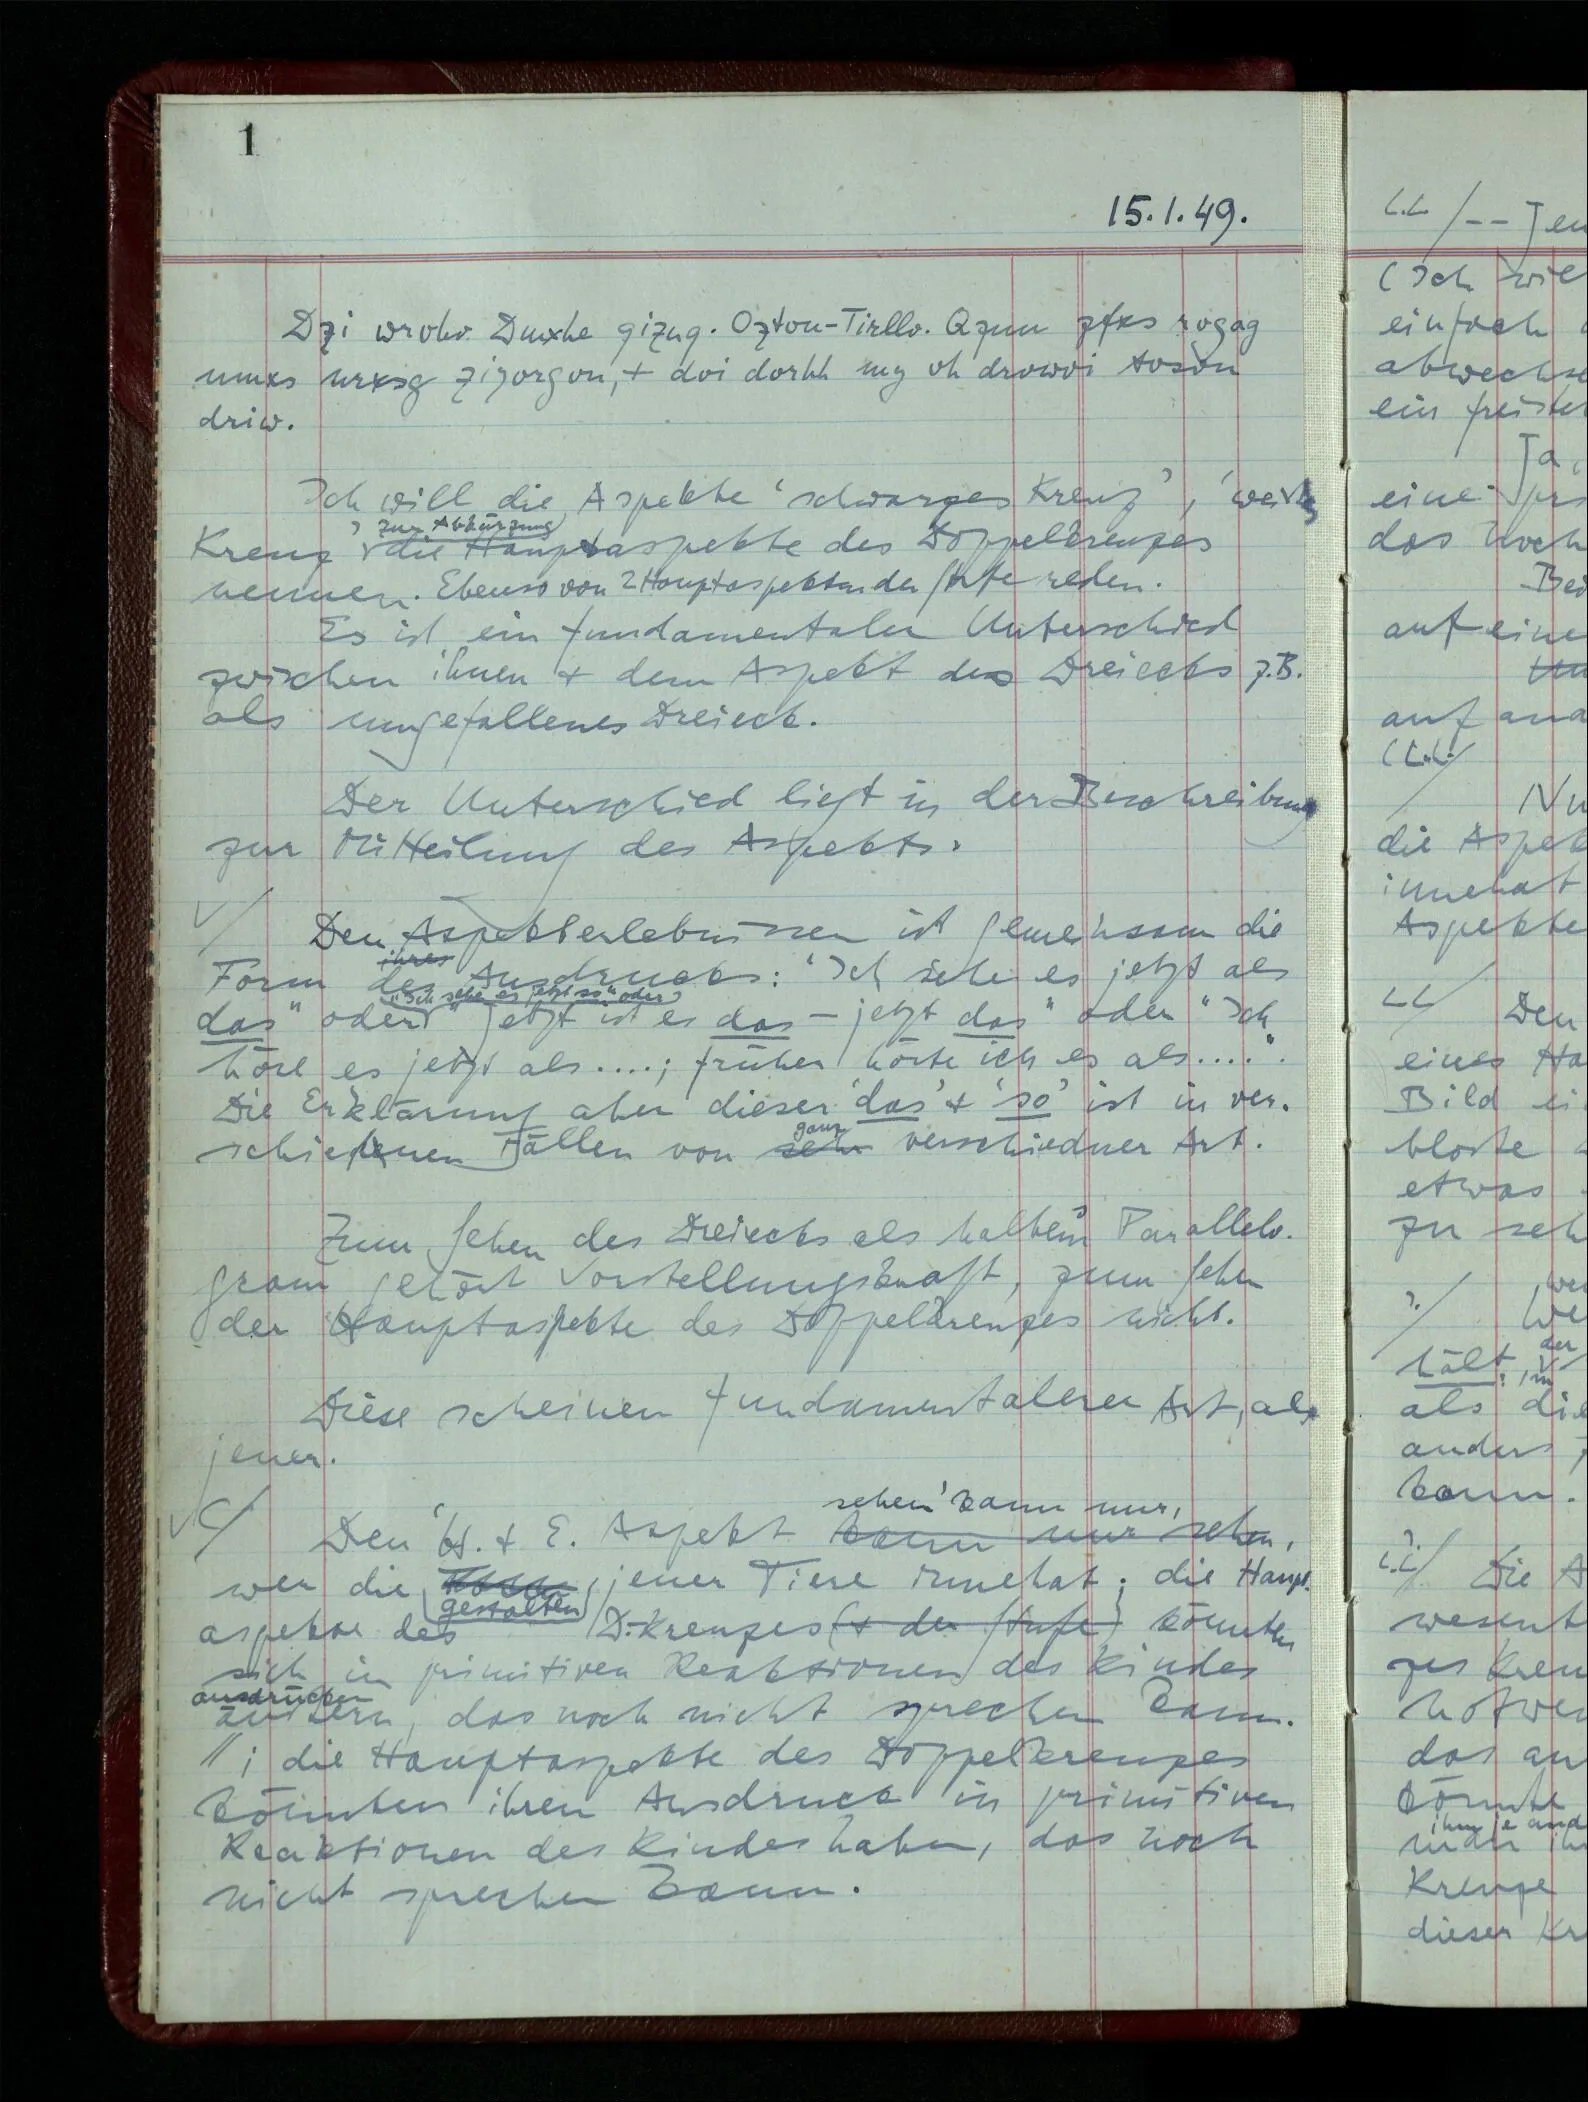 1
15.1.49.
Dzi wrohv Duxhe gizug. Ozton-Tirllv. Qzun zfxs rogag
umxs nrxsg zizorgon, + doi dorhh my oh drowoi toson
driw.
Ich will die Aspekte ‘schwarzes Kreuz’, ‘weißes
zur Abkürzung
Kreuz’ die Hauptaspekte des Doppelkreuzes
nennen. Ebenso von 2 Hauptaspekten der Stufe reden.
Es ist ein fundamentaler Unterschied
zwischen ihnen + dem Aspekt des Dreiecks z.B.
als umgefallenes Dreieck.
Der Unterschied liegt in der Beschreibung
zur Mitteilung des Aspekts.
Den Aspekterlebnissen ist gemeinsam die
ihres
Form des Ausdrucks: “Ich sehe es jetzt als
“Ich sehe es jetzt so” oder
das” oder “jetzt ist es das – jetzt das” oder “Ich
höre es jetzt als ....; früher hörte ich es als ....”.
Die Erklärung aber dieser ‘das’ + ‘so’ ist in ver-
ganz
schiedenen Fällen von sehr verschiedner Art.
Zum Sehen des Dreiecks als halbes Parallelo-
gram gehört Vorstellungskraft, zum Sehen
der Hauptaspekte des Doppelkreuzes nicht.
Diese scheinen fundamentalerer Art, als
jener.
sehen’ kann nur,
Den ‘H. + E. Aspekt kann nur sehen,
wer die jener Tiere innehat; die Haupt-
gestalten
aspekte des D.-Kreuzes (+ der Stufe) könnten
sich in primitiven Reaktionen des Kindes
ausdrücken
äußern, das noch nicht sprechen kann.
// ; die Hauptaspekte des Doppelkreuzes
könnten ihren Ausdruck in primitiven
Reaktionen des Kindes haben, das noch
nicht sprechen kann.
(Ich
einfach
ein
Ja,
eine
das
auf eine
auf
die
innehat
Aspekte
Den
eines
Bild
etwas
zu
hält
der
als
kann.
Die
das
könnte
Kreuze
dieser